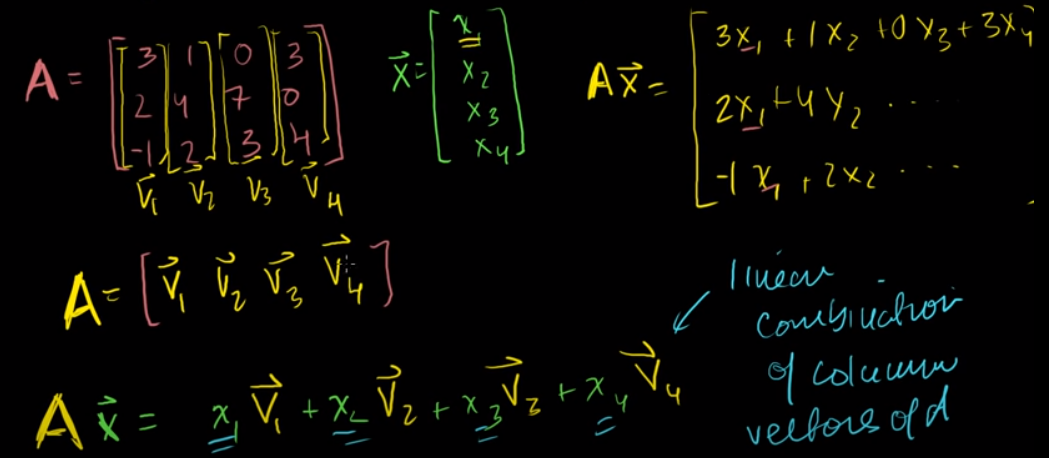 A = [3 1 0 3
2 4 7 0
-1 2 3 4]
v⃗₁ v⃗₂ v₃ v⃗₄
x⃗ = [x₁
x₂
x₃
x₄]
Ax⃗ = [3x₁ + 1x₂ + 0x₃ + 3x₄
2x₁ + 4x₂ ......
-1x₁ + 2x₂ ...]
A = [v⃗₁ v⃗₂ v⃗₃ v⃗₄]
Ax⃗ = x₁v⃗₁ + x₂v⃗₂ + x₃v⃗₃ + x₄v⃗₄
linear
combination
of column
vectors of A